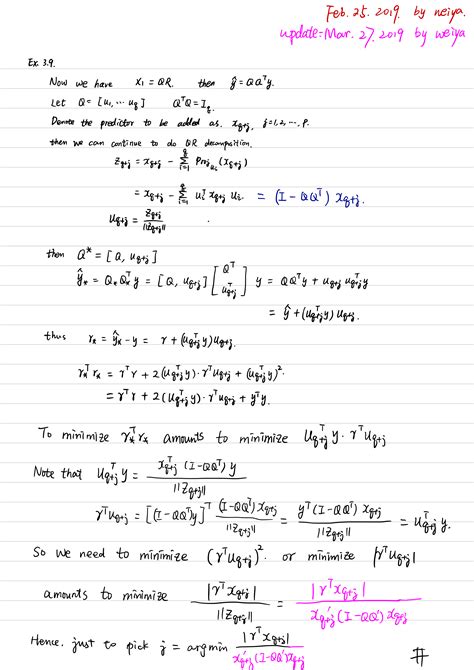 Feb. 25. 2019. by weiya.
update: Mar. 27. 2019 by weiya
Ex. 3.9.
Now we have X₁ = QR. then ŷ = QQᵀy.
Let Q = [u₁, ⋯ u_q] QᵀQ = I_q.
Denote the predictor to be added as. x_{q+j}, j=1,2,⋯, p.
then we can continue to do QR decomposition.
z_{q+j} = x_{q+j} - Σ_{i=1}^{q} Proj_{u_i}(x_{q+j})
= x_{q+j} - Σ_{i=1}^{q} u_iᵀ x_{q+j} u_i. = (I - QQᵀ) x_{q+j}.
u_{q+j} = z_{q+j} / ||z_{q+j}||
then Q* = [Q, u_{q+j}]
ŷ_* = Q_* Q_*ᵀ y = [Q, u_{q+j}] [Qᵀ ; u_{q+j}ᵀ] y = QQᵀy + u_{q+j} u_{q+j}ᵀ y
= ŷ + (u_{q+j}ᵀ y) u_{q+j}.
thus r_* = ŷ_* - y = r + (u_{q+j}ᵀ y) u_{q+j}.
r_*ᵀ r_* = rᵀr + 2 (u_{q+j}ᵀ y) · rᵀu_{q+j} + (u_{q+j}ᵀ y)².
= rᵀr + 2 (u_{q+j}ᵀ y) · rᵀu_{q+j} + yᵀy.
To minimize r_*ᵀ r_* amounts to minimize u_{q+j}ᵀ y · rᵀu_{q+j}
Note that u_{q+j}ᵀ y = x_{q+j}ᵀ (I - QQᵀ) y / ||z_{q+j}||
rᵀu_{q+j} = [(I - QQᵀ)y]ᵀ (I - QQᵀ) x_{q+j} / ||z_{q+j}|| = yᵀ (I - QQᵀ) x_{q+j} / ||z_{q+j}|| = u_{q+j}ᵀ y.
So we need to minimize (rᵀu_{q+j})². or minimize |rᵀu_{q+j}|
amounts to minimize |rᵀx_{q+j}| / ||z_{q+j}|| = |rᵀx_{q+j}| / x'_{q+j} (I - QQ') x_{q+j}
Hence. just to pick j = argmin |rᵀx_{q+j}| / x'_{q+j} (I - QQ') x_{q+j} #